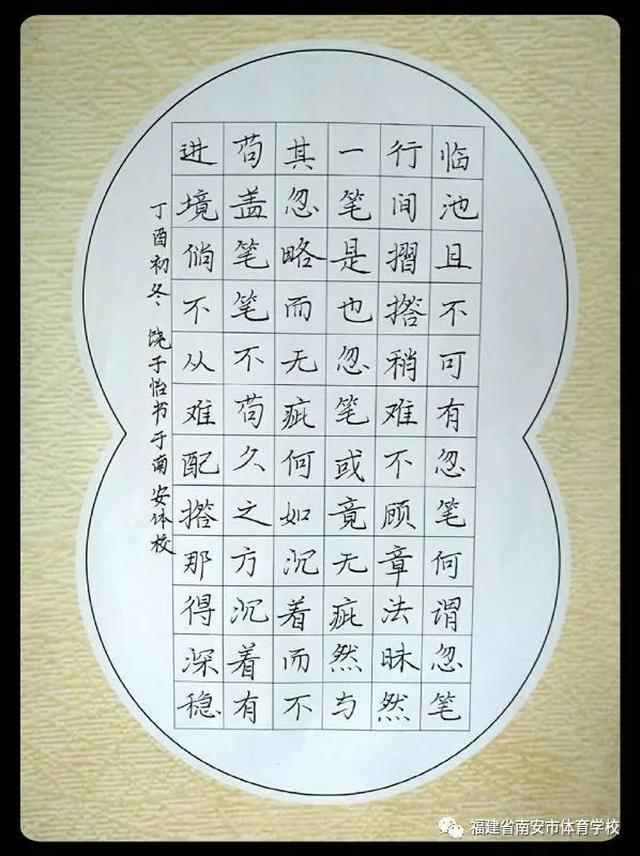 临池且不可有忽笔何谓忽笔
行间摺撘稍难不顾章法昧然
一笔是也忽笔或竟无疵然与
其忽略而无疵何如沉着而不
苟盖笔笔不苟久之方沉着有
进境倘不从难配撘那得深稳
丁酉初冬 饶子怡书于南安体校
福建省南安市体育学校